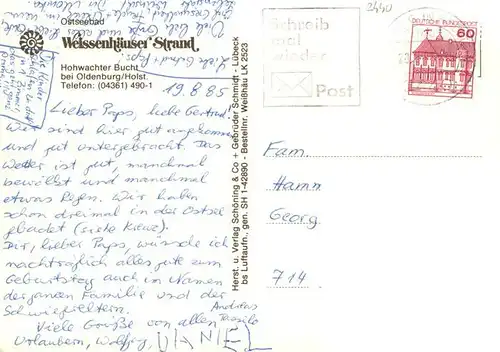 Ostseebad
Weissenhäuser Strand
Hohwachter Bucht
bei Oldenburg/Holst.
Telefon: (04361) 490-1
19.8.85
Lieber Paps, liebe Gertrud!
Wir sind hier gut angekommen
und gut untergebracht. Das
Wetter ist gut, manchmal
bewölkt und manchmal
etwas Regen. Wir haben
schon dreimal in der Ostsee
gebadet (siehe Kreuz).
Dir, lieber Paps, wünsche ich
nachträglich alles gute zum
Geburtstag auch im Namen
der ganzen Familie und der
Schwiegereltern.
Viele Grüße von allen
Urlaubern, Wolfgang,
Andreas
Tassilo
DANIEL
Herst. u. Verlag Schöning & Co + Gebrüder Schmidt, Lübeck
bs Luftaufn., gen. SH 1-42890 - Bestellnr. Weißhäu LK 2523
Schreib
mal
wieder
Post
2440
DEUTSCHE BUNDESPOST
60
Fam.
Hamn
Georg
714